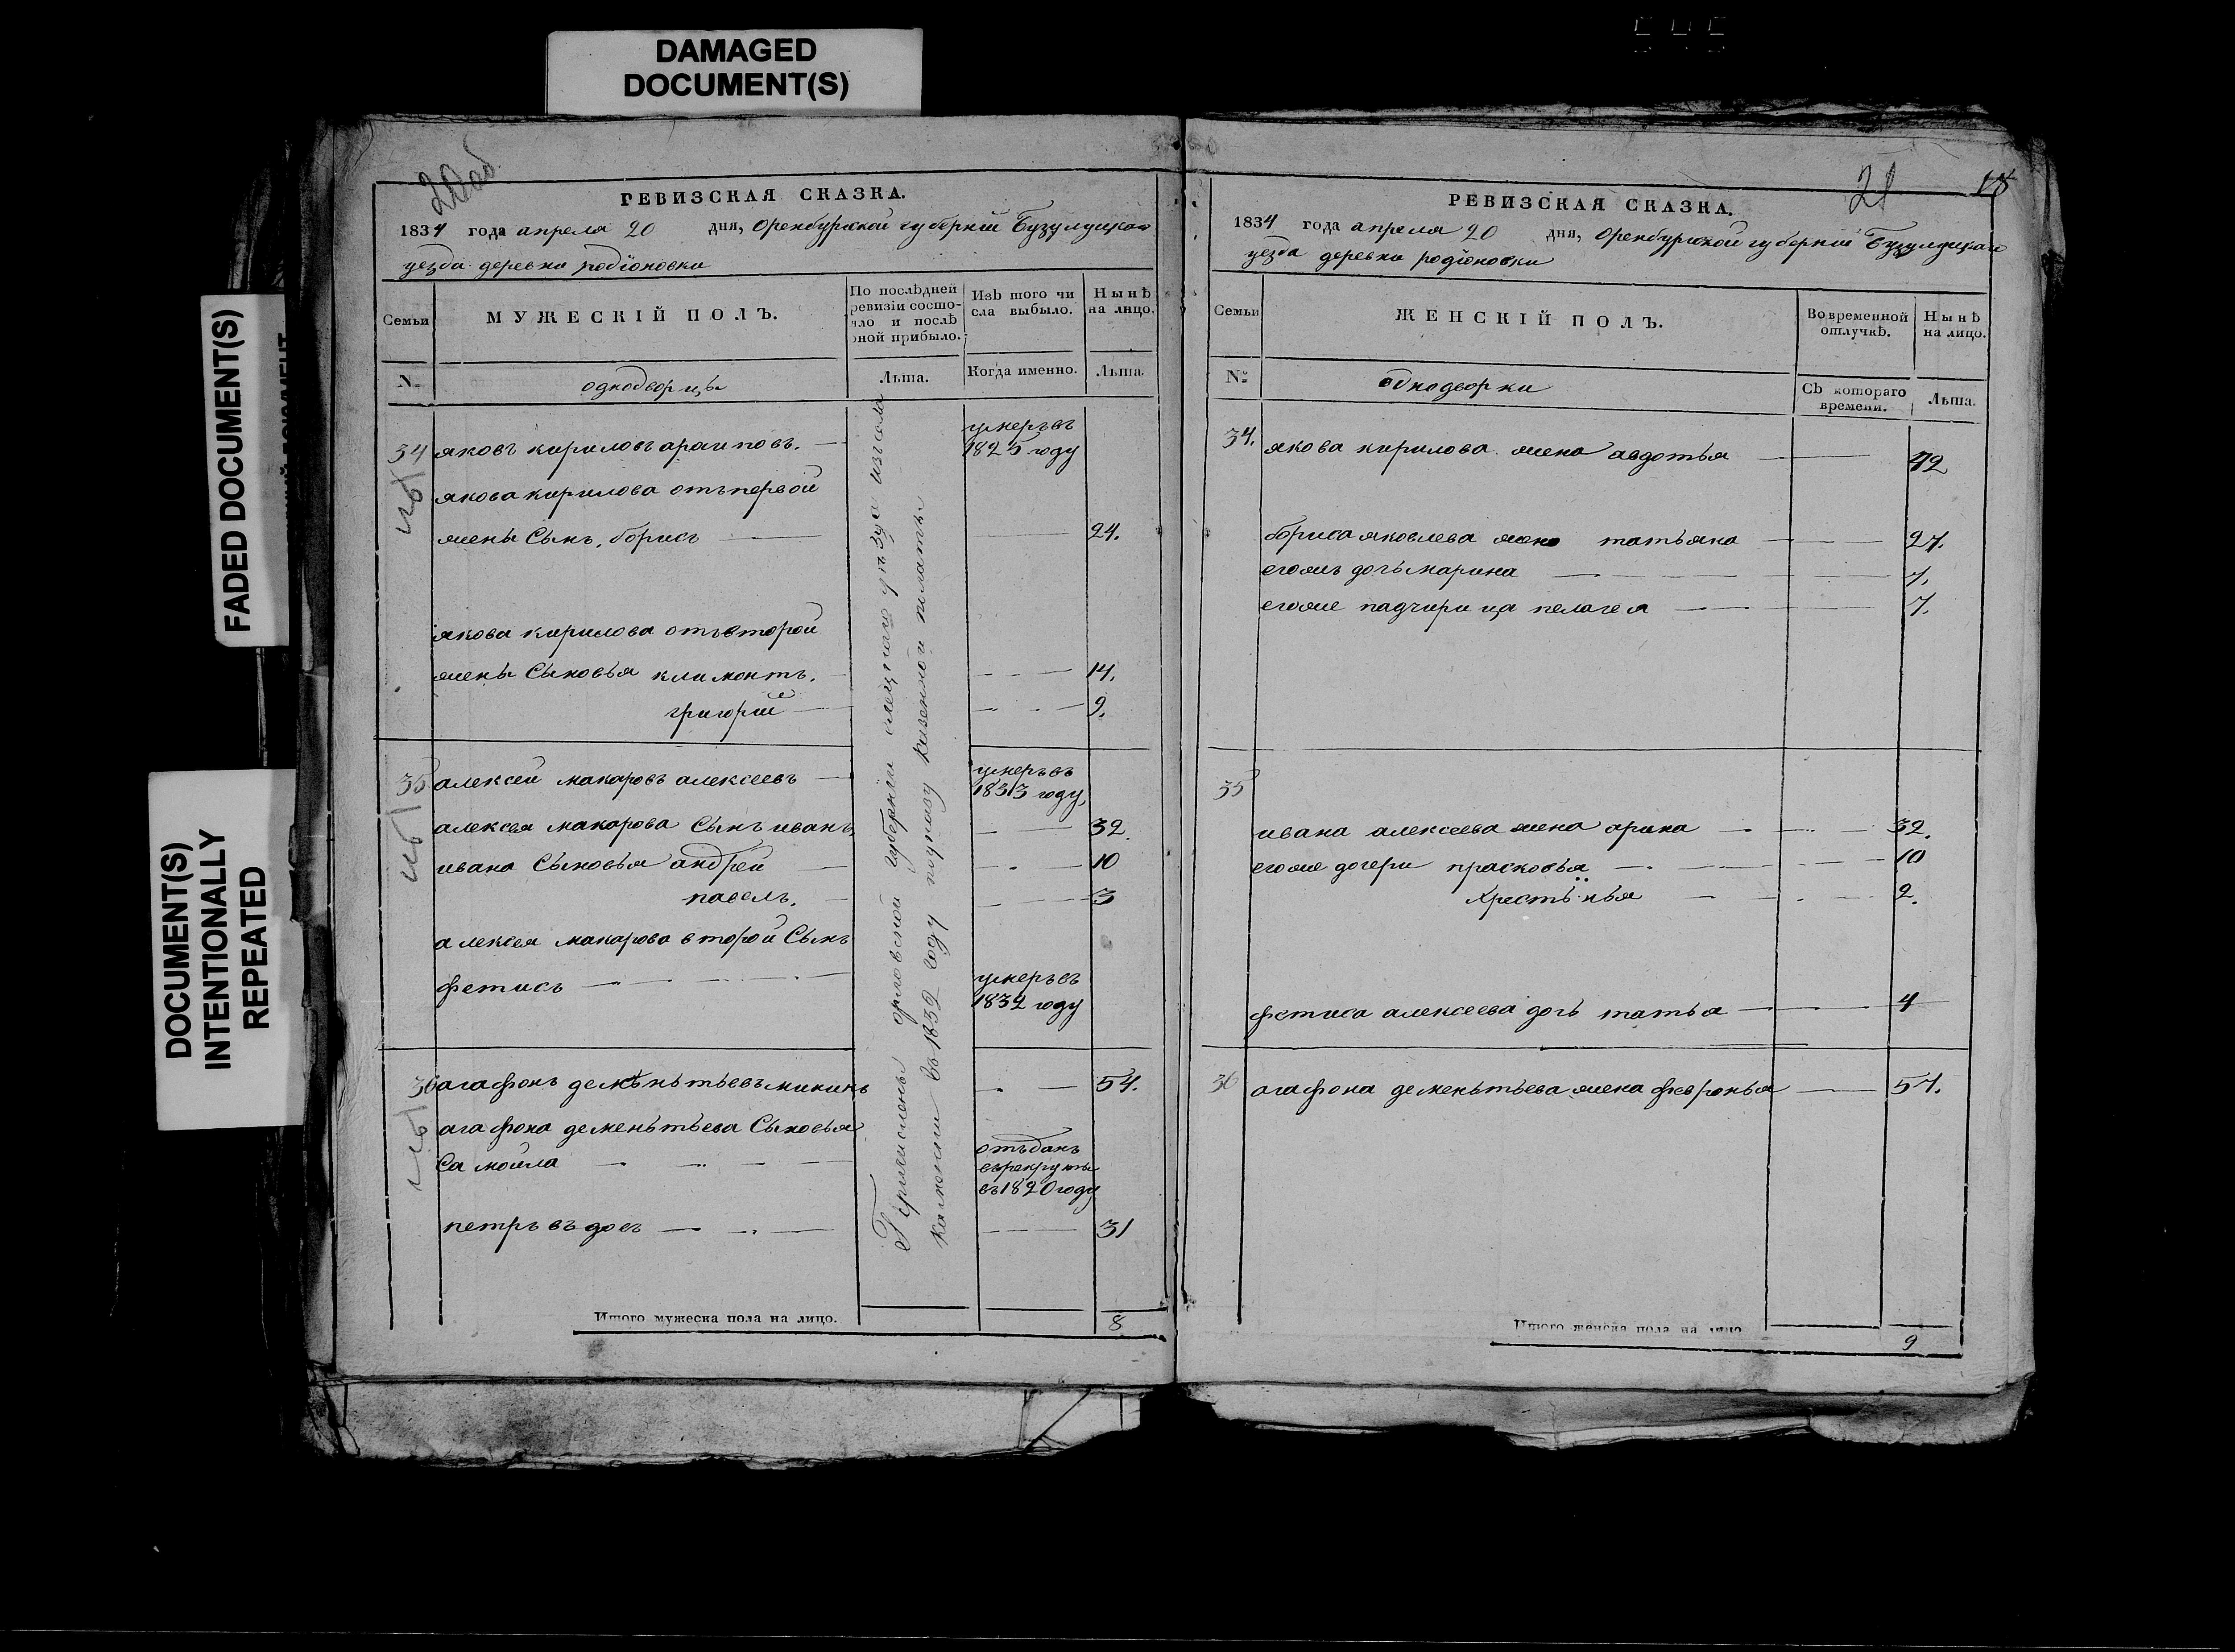 DAMAGED
DOCUMENT(S)
FADED DOCUMENT(S)
DOCUMENT(S)
INTENTIONALLY
REPEATED
20об
РЕВИЗСКАЯ СКАЗКА.
1834 года апреля 20 дня, Оренбурской губерніи Бузулуцкаго
уезда деревни родіоновки
Семьи
МУЖЕСКІЙ ПОЛЪ.
По послѣдней
ревизіи состо-
яло и послѣ
оной прибыло.
Изъ того чи
сла выбыло.
Нынѣ
на лицо.
№
однодворцы
Лѣта.
Когда именно.
Лѣта.
34 яковъ кириловъ архиповъ.
умеръ въ
1825 году
якова кирилова отъ первой
жены Сынъ, борисъ 24.
якова кирилова отъ второй
жены Сыновья климонтъ. 14.
григорій 9.
35 алексей макаровъ алексеевъ
умеръ въ
1833 году,
алексея макарова Сынъ иванъ 32
ивана Сыновья андрей 10
павелъ. 3
алексея макарова второй Сынъ
фетисъ
умеръ въ
1832 году
36 агафонъ деменьтьевъ микинъ 54.
агафона деменьтьева Сыновья
Самойла
отъданъ
въ рекруты
въ 1820 году
петръ вдовъ 31
Причислены орловской губерніи елецкаго уезда изъ села
каменки въ 1832 году по указу казенной палаты
Итого мужеска пола на лицо. 8
21
18
РЕВИЗСКАЯ СКАЗКА.
1834 года апреля 20 дня, Оренбурской губерніи Бузулуцкаго
уезда деревни родіоновки
Семьи
ЖЕНСКІЙ ПОЛЪ.
Во временной
отлучкѣ.
Нынѣ
на лицо.
№
однодворки
Съ котораго
времени.
Лѣта.
34. якова кирилова жена авдотья 42
бориса яковлева жена татьяна 27.
егожъ дочь марина 7.
егоже падчирица пелагея 7.
35
ивана алексеева жена арина 32.
егоже дочери прасковья 10
Хрестінья 2.
фетиса алексеева дочь татья 4
36 агафона деменьтьева жена февронья 57.
Итого женска пола на лицо 9